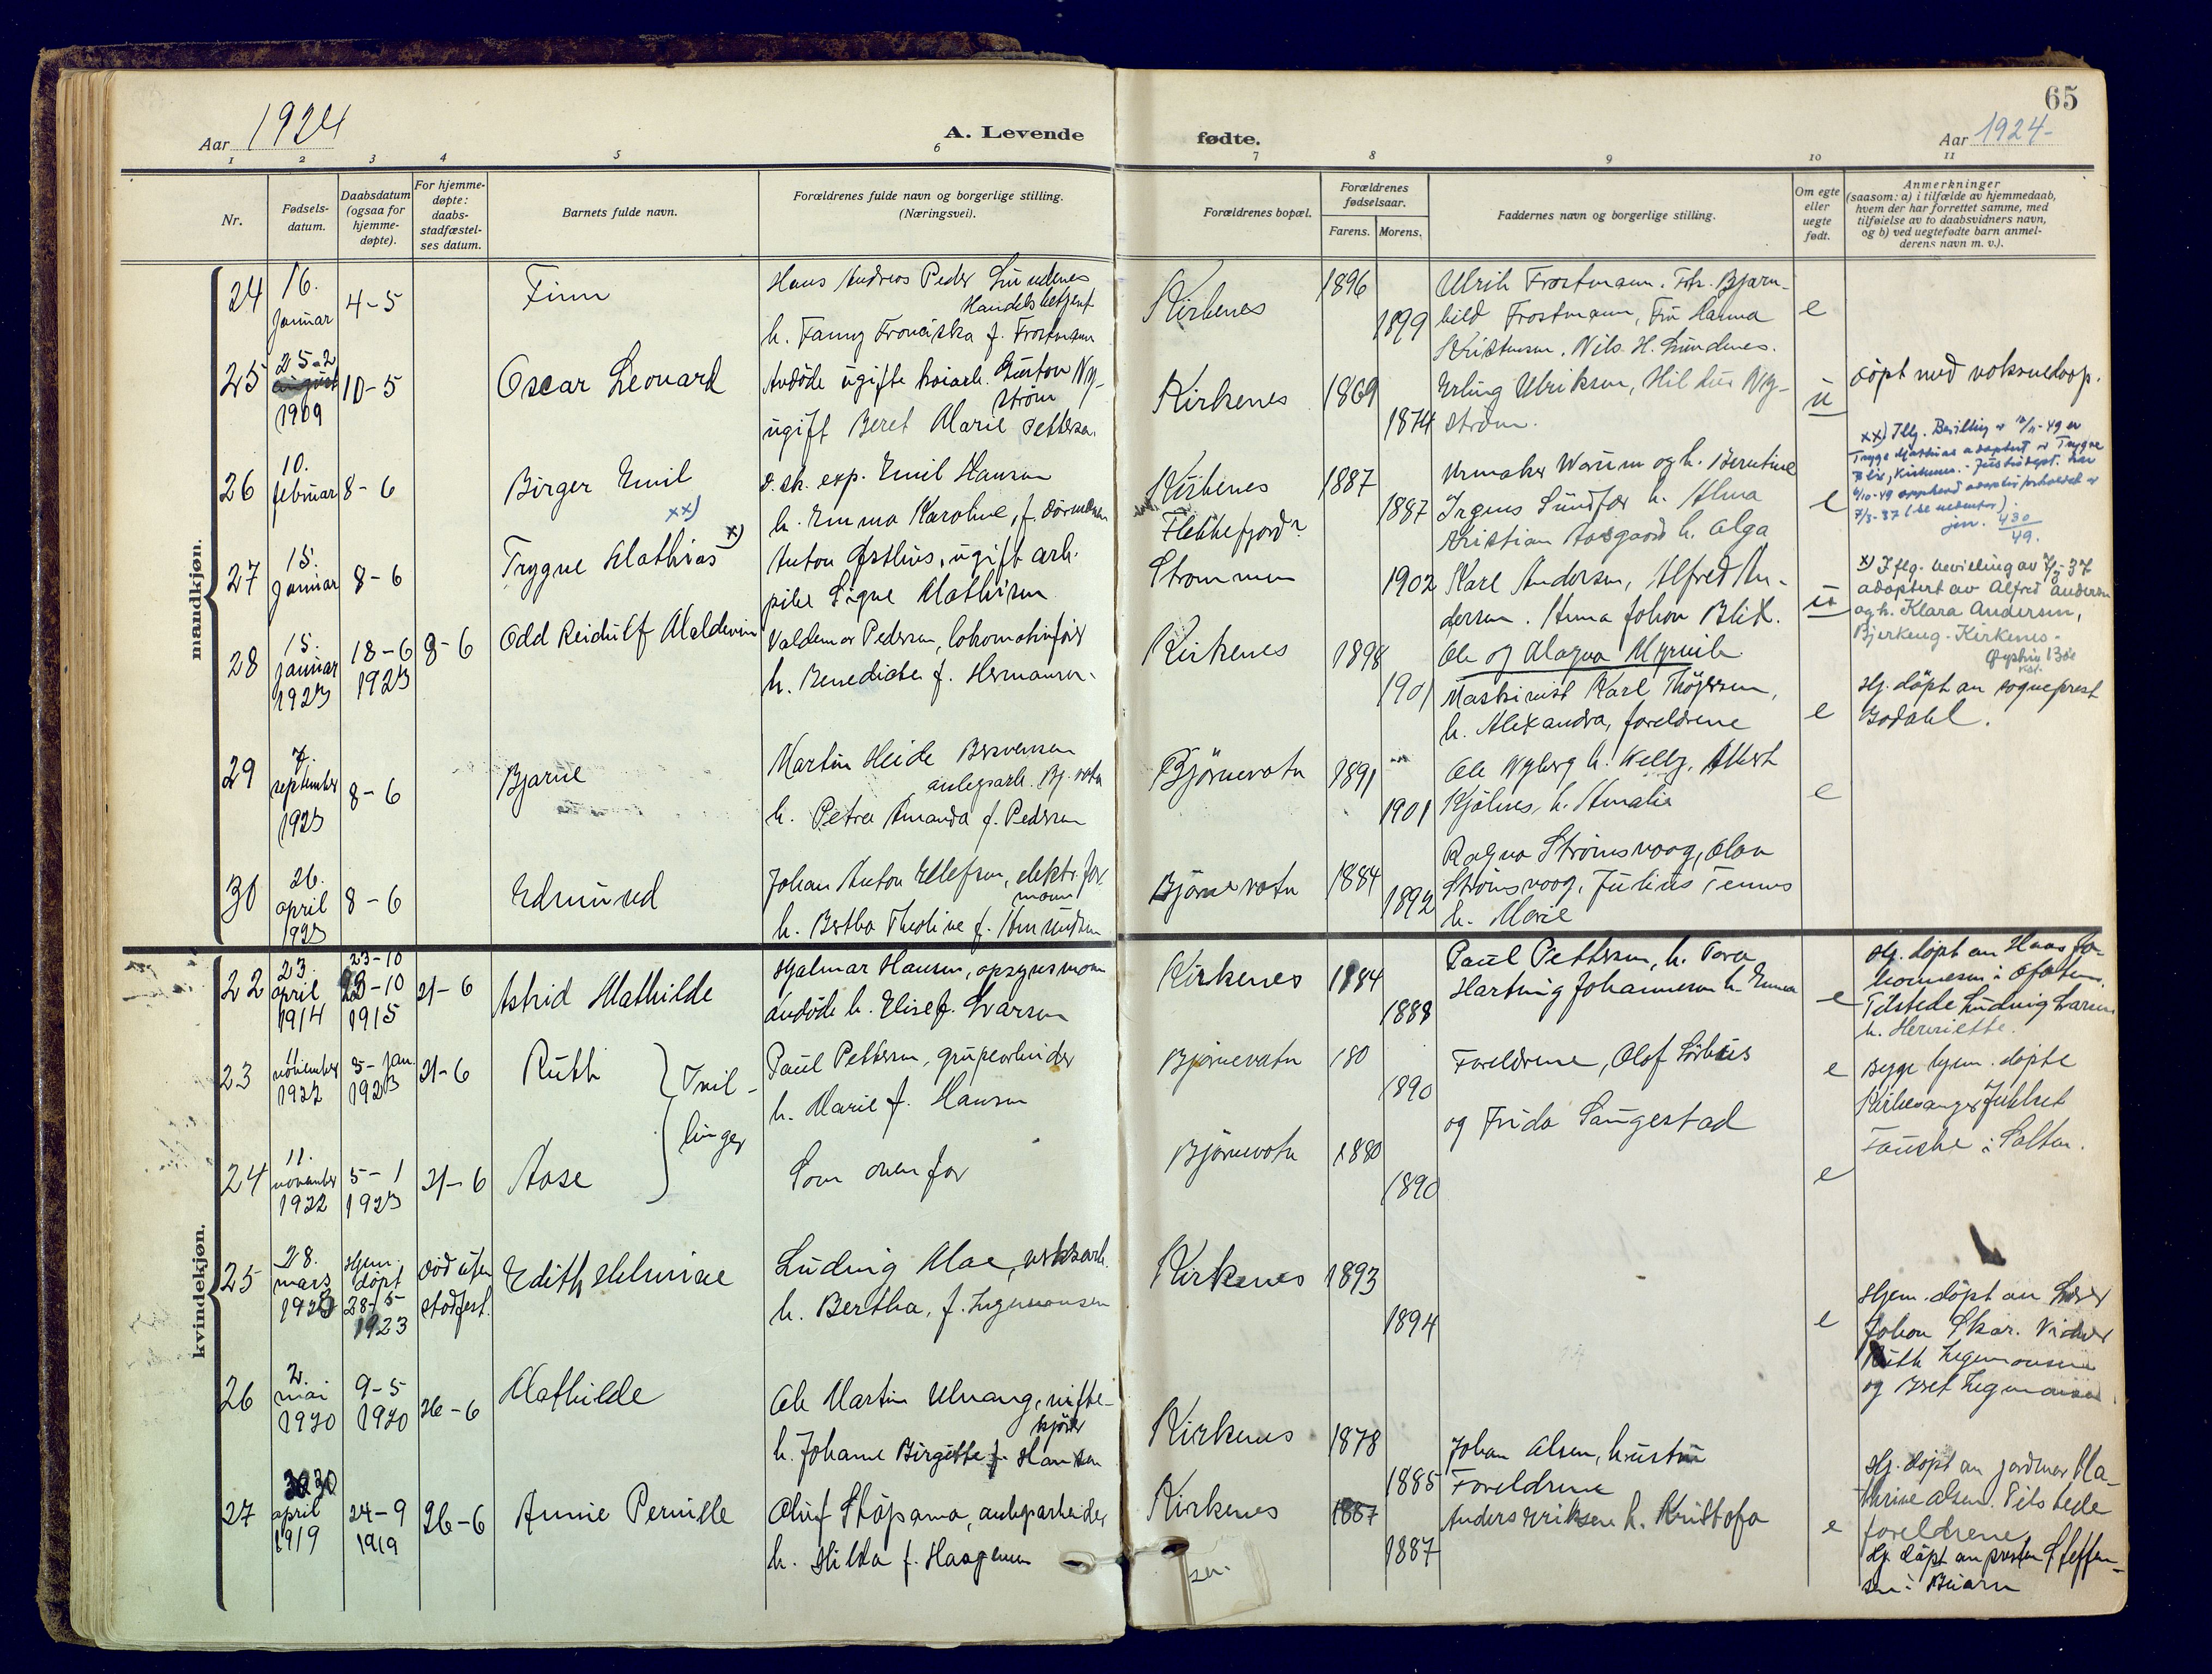 65
Aar 1924
A. Levende
fødte.
Aar 1924-
1 2 3 4 5 6 7 8 9 10 11
Nr.
Fødsels-
datum.
Daabsdatum
(ogsaa for
hjemme-
døpte).
For hjemme-
døpte:
daabs-
stadfæstel-
ses datum.
Barnets fulde navn.
Forældrenes fulde navn og borgerlige stilling.
(Næringsvei).
Forældrenes bopæl.
Forældrenes
fødselsaar.
Farens. Morens.
Faddernes navn og borgerlige stilling.
Om egte
eller
uegte
født.
Anmerkninger
(saasom: a) i tilfælde av hjemmedaab,
hvem der har forrettet samme, med
tilføielse av to daabsvidners navn,
og b) ved uegtefødte barn anmel-
derens navn m. v.).
mandkjøn.
24
16.
Januar
4-5
Finn
Hans Andreas Peder Lundenes
Handelsbetjent
h. Fanny Franciska f. Frostmann
Kirkenes
1896
1899
Ulrik Frostmann. Frk. Bjarn-
hild Frostmann, Fru Hanna
Kristensen. Nils H. Lundenes.
e
25
25-2
august
1909
10-5
Oscar Leonard
Avdøde ugifte Gustav Ny-
strøm
ugift Beret Marie Pettersen.
Kirkenes
1869
1874
Erling Ulriksen, Hildur Ny-
strøm.
u
døpt med voksnedaap.
26
10.
februar
8-6
Birger Emil
d. sk. exp. Emil Hansen
h. Emma Karoline, f.
Kirkenes
Flekkefjord?
1887
1887
Urmaker Warum og h. Berntine
Irgens Sundfær h. Alma
Kristian Aasgaard h. Olga
e
xx) Iflg. Bevilling av 12/11-49 er
Trygve Mathias adoptert av Trygve
Blix, Kirkenes. - Justisdept. har
6/10-49 opphevd adoptivforholdet av
7/5-37 (se nedenfor).
jnr. 430
49.
27
15.
Januar
8-6
Trygve Mathias xx) x)
Anton Østhus, ugift arb.
pike Signe Mathisen
Strømmen
1902
Karl Andersen, Alfred An-
dersen. Anna Johan Blix.
Ole og Magna Myrvik
u
x) Iflg. bevilling av 7/5-37
adoptert av Alfred Andersen
og h. Klara Andersen,
Bjerkeng - Kirkenes -
28
15.
januar
1923
18-6
1923
8-6
Odd Reidulf Maldevin
Valdemar Pedersen, lokomotivfører
h. Benedicte f. Hermansen.
Kirkenes
1898
1901
Maskinist Karl Thøgersen,
h. Alexandra, foreldrene
e
Hj. døpt av sogneprest
Bodahl.
29
7.
september
1923
8-6
Bjarne
Martin Heide Besvensen
anlegsarb. Bj. vatn
h. Petra Amanda f. Pedersen
Bjørnevatn
1891
1901
Ole Nyberg h. Nelly, Albert
Kjølnes, h. Amalie
e
30
26.
april
1923
8-6
Edmund
Johan Anton Ellefsen, elektr. for-
mann
h. Bertha Theoline f. Amundsen
Bjørnevatn
1884
1892
Ragna Strømsvaag, Olav
Strømsvaag, Julius Tennes
h. Marie
kvindekjøn.
22
23.
april
1914
23-10
23-10
1915
21-6
Astrid Mathilde
Hjalmar Hansen, opsynsmann
Avdøde h. Elise f. Ivarsen
Kirkenes
1884
1888
Paul Pettersen, h. Tora
Hartvig Johannesen h. Emma
e
Hj. døpt av Hans Jo-
hannesen i Ofoten.
Tilstede Ludvig Larsen
h. Henriette.
23
11
november
1922
5-Jan.
1923
21-6
Ruth
Tvil-
linger
Paul Pettersen, grupearbeider
h. Marie f. Hansen
Bjørnevatn
180
1890
Foreldrene, Olof Sørhus
og Frida Saugestad
e
Begge hjem. døpte
Kirkesanger Juklset
Fauske i Salten.
24
11.
november
1922
5-1
1923
21-6
Aase
Som ovenfor
Bjørnevatn
1880
1890
e
25
28.
mars
1923
Hjem.
døpt
28-5-
1923
død uten
stadfest.
Edith Helmine
Ludvig Moe, verksarb.
h. Bertha, f. Ingemansen
Kirkenes
1893
1894
e
Hjem. døpt av Lærer
Johan Skar. Vidner
Ruth Ingemansen
og Bret Ingmansen.
26
2.
mai
1920
9-5
1920
26-6
Mathilde
Ole Martin Ulvang, vifte-
kjører
h. Johanne Birgitte f. Hansen
Kirkenes
1878
1885
Johan Olsen, hustru
Foreldrene
Hj. døpt av jordmor Ma-
thrine Olsen. Tilstede
foreldrene
27
30
april
1919
24-9
1919
26-6
Annie Pernille
Oluf Støpamo, anlegsarbeider
h. Hilda f. Haagensen
Kirkenes
1887
1887
Anders Eriksen h. Kristofa
e
Hj. døpt av presten Steffen-
sen i Beiarn
sen.